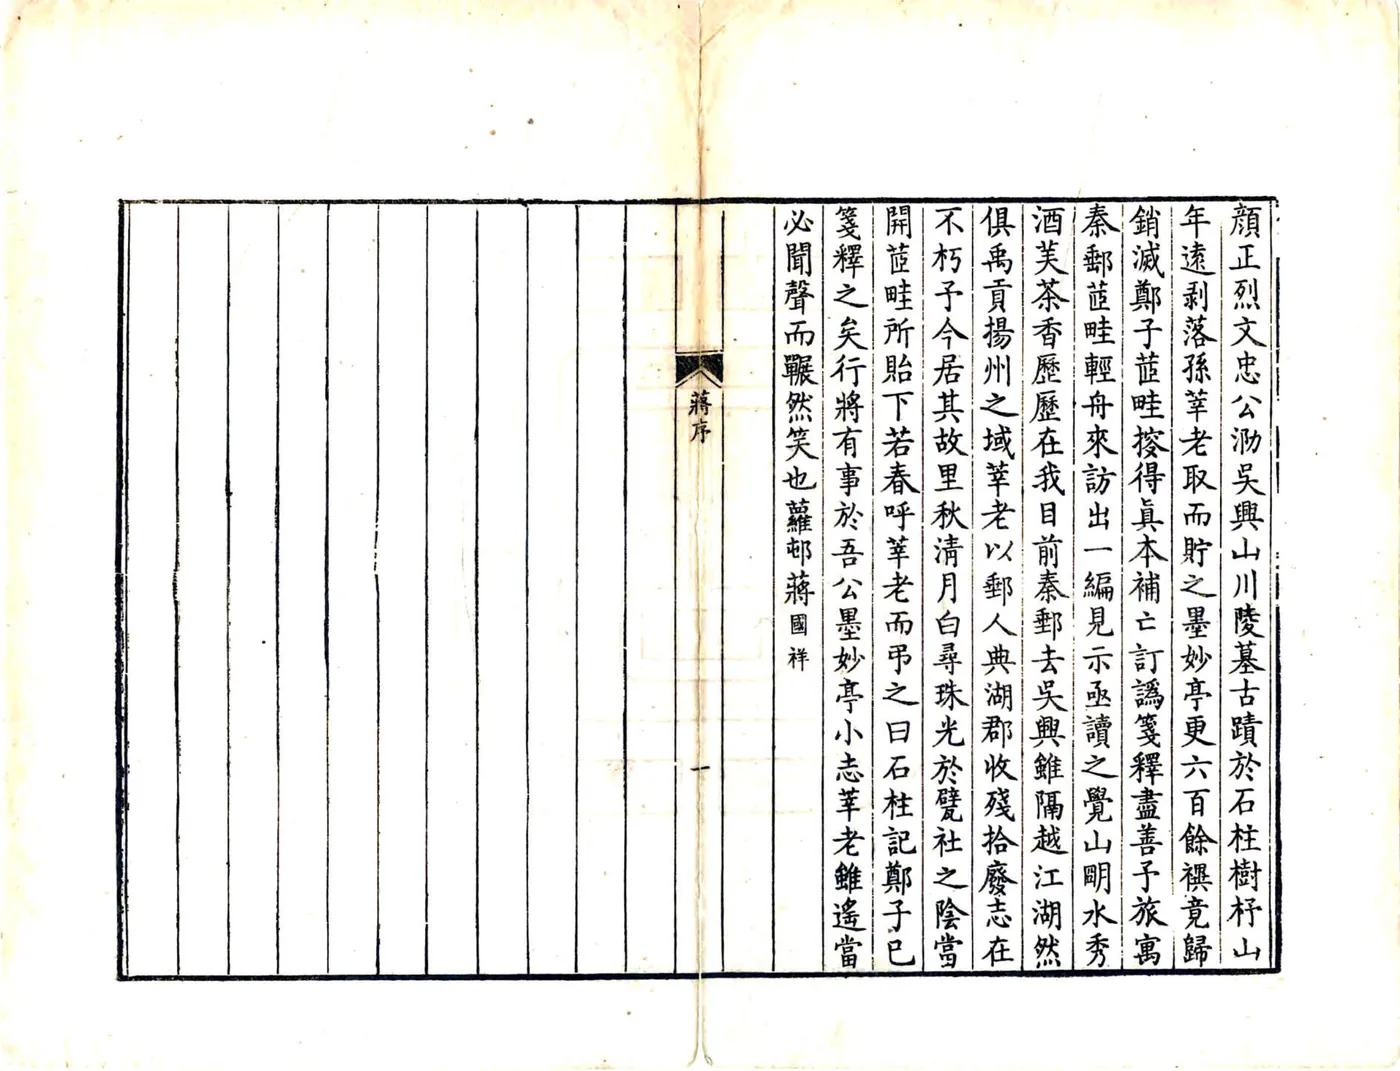 顔正烈文忠公泐吳興山川陵墓古蹟於石柱樹杼山
年遠剥落孫莘老取而貯之墨妙亭更六百餘禩竟歸
銷滅鄭子芷畦搜得眞本補亡訂譌箋釋盡善予旅寓
秦郵芷畦輕舟來訪出一編見示亟讀之覺山明水秀
酒芙茶香歷歷在我目前秦郵去吳興雖隔越江湖然
俱禹貢揚州之域莘老以郵人典湖郡收殘拾廢志在
不朽予今居其故里秋淸月白尋珠光於甓社之陰當
開芷畦所貽下若春呼莘老而弔之曰石柱記鄭子已
箋釋之矣行將有事於吾公墨妙亭小志莘老雖遙當
必聞聲而囅然笑也蘿邨蔣國祥
蔣序
一